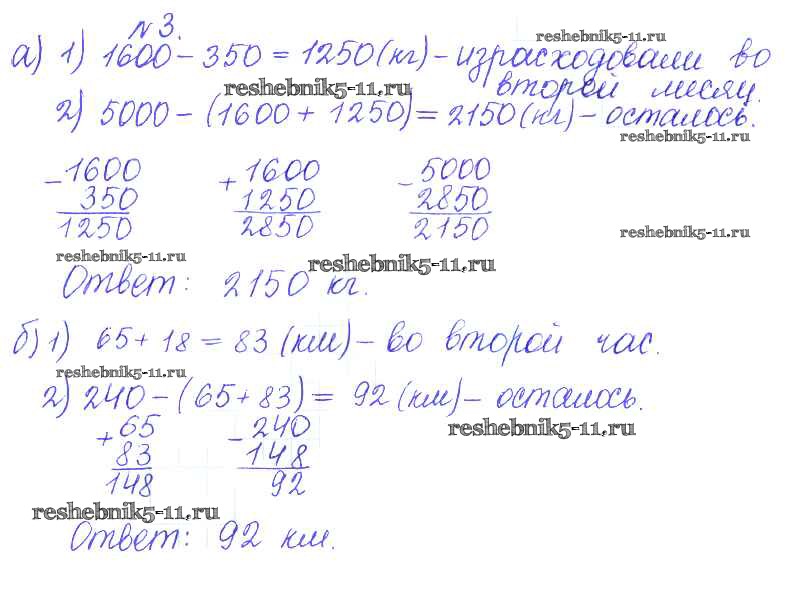 № 3.
reshebnik5-11.ru
а) 1) 1600 - 350 = 1250 (кг) - израсходовали во
второй месяц.
reshebnik5-11.ru
2) 5000 - (1600 + 1250) = 2150 (кг) - осталось.
reshebnik5-11.ru
- 1600 + 1600 - 5000
350 1250 2850
1250 2850 2150
reshebnik5-11.ru
reshebnik5-11.ru
reshebnik5-11.ru
Ответ: 2150 кг.
б) 1) 65 + 18 = 83 (км) - во второй час.
reshebnik5-11.ru
2) 240 - (65 + 83) = 92 (км) - осталось.
+ 65 - 240
reshebnik5-11.ru
83 148
148 92
reshebnik5-11.ru
Ответ: 92 км.